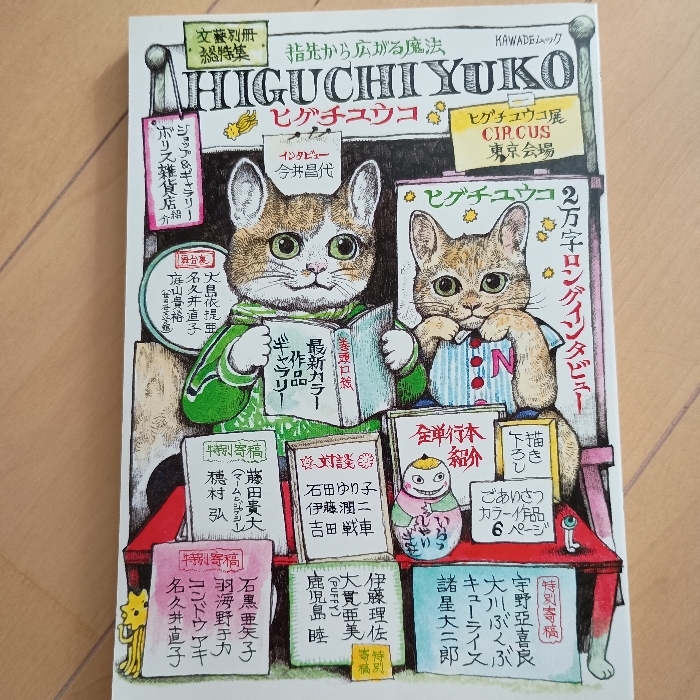 文藝別冊
総特集
指先から広がる魔法
KAWADEムック
HIGUCHI YUKO
ヒグチユウコ
ヒグチユウコ展
CIRCUS
東京会場
ショップ&ギャラリー
ボリス雑貨店
紹介
インタビュー
今井昌代
ヒグチユウコ
2万字ロングインタビュー
舞台裏
大島依提亜
名久井直子
庭山貴裕
巻頭口絵
最新カラー
作品
ギャラリー
N
全単行本
紹介
描き
下ろし
特別寄稿
藤田貴大
(マームとジプシー)
穂村 弘
対談
石田ゆり子
伊藤潤二
吉田戦車
ごあいさつ
カラー作品
6
ページ
特別寄稿
石黒亜矢子
羽海野チカ
コンドウアキ
名久井直子
伊藤理佐
大貫亜美
(PUFFY)
鹿児島 睦
特別
寄稿
特別寄稿
宇野亞喜良
大川ぶくぶ
キューライス
諸星大二郎